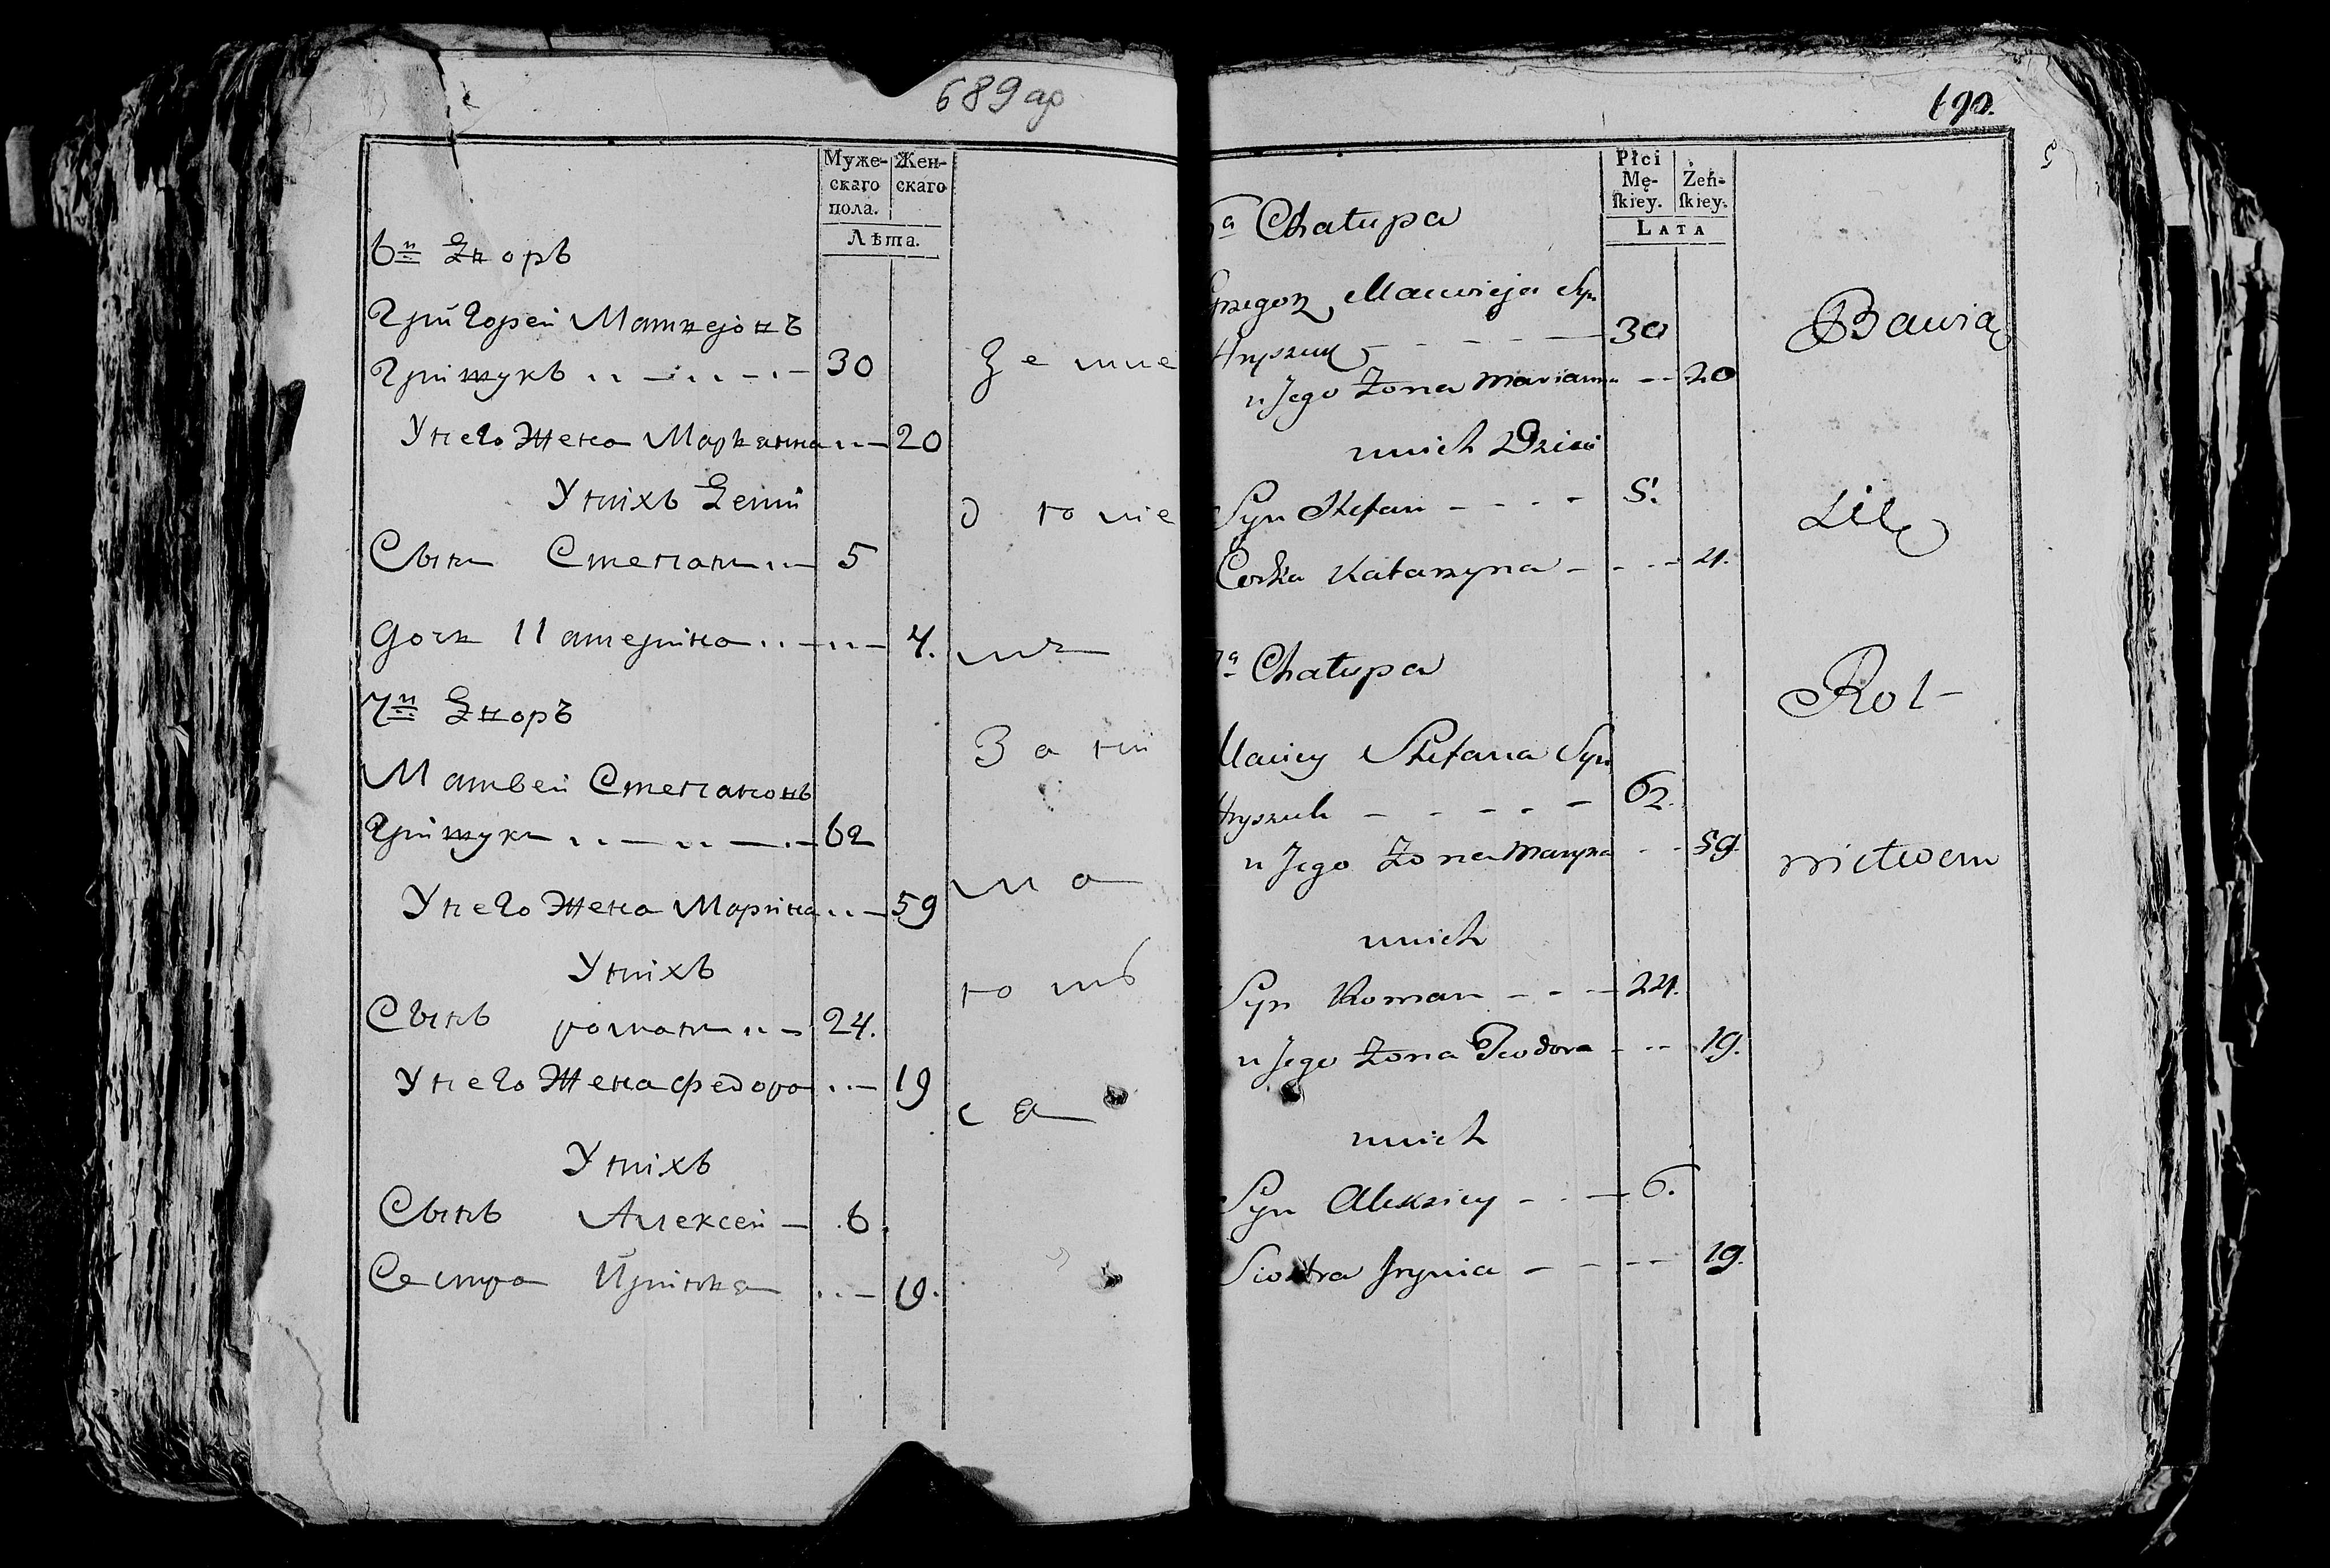 689 ар
Муже-
скаго
пола.
Жен-
скаго
Лѣта.
6й Дворъ
Григорей Матвеовъ
Гришукъ 30
У него Жена Марианна 20
У нихъ Дети
Сынъ Степанъ 5
Дочь Катерина 4.
7й Дворъ
Матвей Степановъ
Гришукъ 62
У него Жена Марина 59
У нихъ
Сынъ романъ 24.
У него Жена федора 19
У нихъ
Сынъ Алексей 6.
Сестра 19.
Земле
д ѣ лие
мъ
За ни
ма
ю тъ
ся
690.
Płci
Mę-
skiey.
Żeń-
skiey.
LATA
a Chałupa
Grzegorz Macwieja Syn
Hryszuk 30
u Jego Żona Marianna 20
unich Dzieci
Syn Stefan 5.
Corka Katarzyna 4.
7a Chałupa
Maciey Stefana Syn
Hryszuk 62.
u Jego Żona Maryna 59
unich
Syn Roman 24.
u Jego Żona Teodora 19.
unich
Syn Alexiey 6.
Siostra Irynia 19.
Bawią
się
Rol-
nictwem